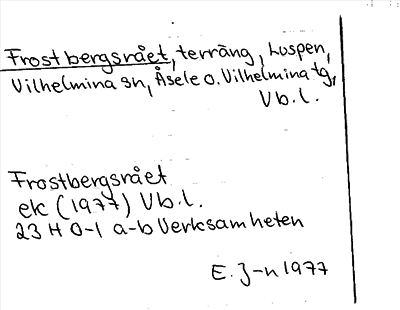 Frostbergsrået, terräng, Luspen,
Vilhelmina sn, Åsele o. Vilhelmina tg,
Vb.l.
Frostbergsrået
ek (1977) Vb.l.
23 H 0-1 a-b Verksamheten
E. J-n 1977